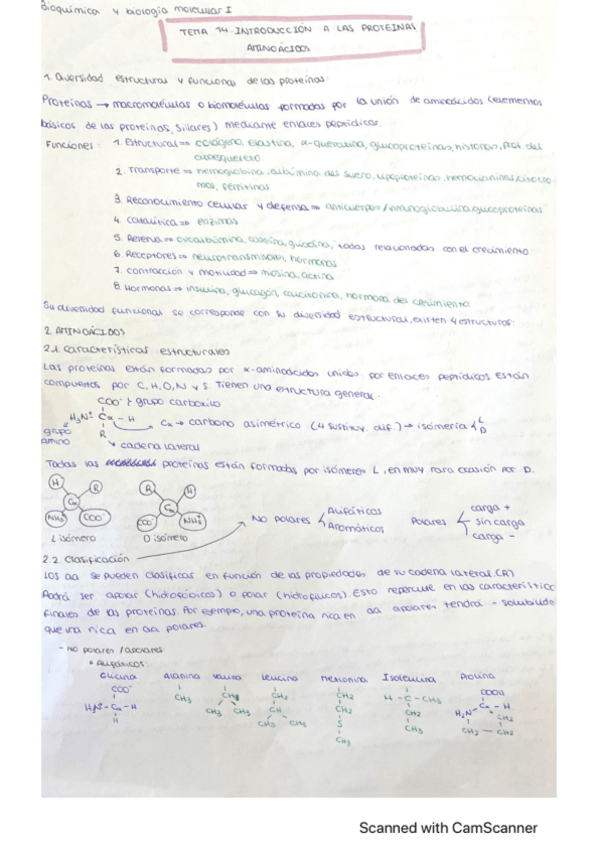 Bioquímica y biología molecular I
TEMA 14. INTRODUCCIÓN A LAS PROTEINAS
AMINOÁCIDOS
1. Diversidad estructural y funcional de las proteínas
Proteínas → macromoléculas o biomoléculas formadas por la unión de aminoácidos (elementos
básicos de las proteínas, sillares) mediante enlaces peptídicos.
Funciones: 1. Estructural ⇒ colágeno, elastina, α-queratina, glucoproteínas, histonas, prot del
citoesqueleto
2. Transporte ⇒ hemoglobina, albúmina del suero, lipoproteínas, hemocianinas, citocro
mos, ferritinas
3. Reconocimiento celular y defensa ⇒ anticuerpos/inmunoglobulina, glucoproteínas
4. Catalítica ⇒ enzimas
5. Reserva ⇒ ovoalbúmina, caseína, gliadina, todas relacionadas con el crecimiento
6. Receptores ⇒ neurotransmisores, hormonas
7. Contracción y motilidad ⇒ miosina, actina
8. Hormonas ⇒ insulina, glucagón, calcitonina, hormona del crecimiento
Su diversidad funcional se corresponde con su diversidad estructural, existen 4 estructuras:
2. AMINOÁCIDOS
2.1. Características estructurales
Las proteínas están formadas por α-aminoácidos unidos por enlaces peptídicos. Están
compuestos por C, H, O, N y S. Tienen una estructura general.
COO⁻ } grupo carboxilo
H₃N⁺ - Cα - H
Cα → carbono asimétrico (4 sustituy. dif.) → isomería L D
grupo
amino
R
→ cadena lateral
Todas las proteínas están formadas por isómeros L, en muy rara ocasión por D.
H R Cα NH₃⁺ COO⁻
R H Cα COO⁻ NH₃⁺
L isómero D isómero
No polares Alifáticos Aromáticos
Polares carga + sin carga carga -
2.2. Clasificación
Los aa se pueden clasificar en función de las propiedades de su cadena lateral (R)
Podrá ser apolar (hidrofóbicos) o polar (hidrofílicos). Esto repercute en las característica
finales de las proteínas. Por ejemplo, una proteína rica en aa apolares tendrá - solubilidad
que una rica en aa polares.
- No polares / apolares
• Alifáticos:
Glicina Alanina Valina Leucina Metionina Isoleucina Prolina
COO⁻ CH₃ CH CH₂ CH₂ H - C - CH₃ COOH
H₃N⁺ - Cα - H CH₃ CH₃ CH CH₂ CH₂ H₂N Cα - H
H CH₃ CH₃ S CH₃ CH₂
CH₃ CH₂ — CH₂
Scanned with CamScanner